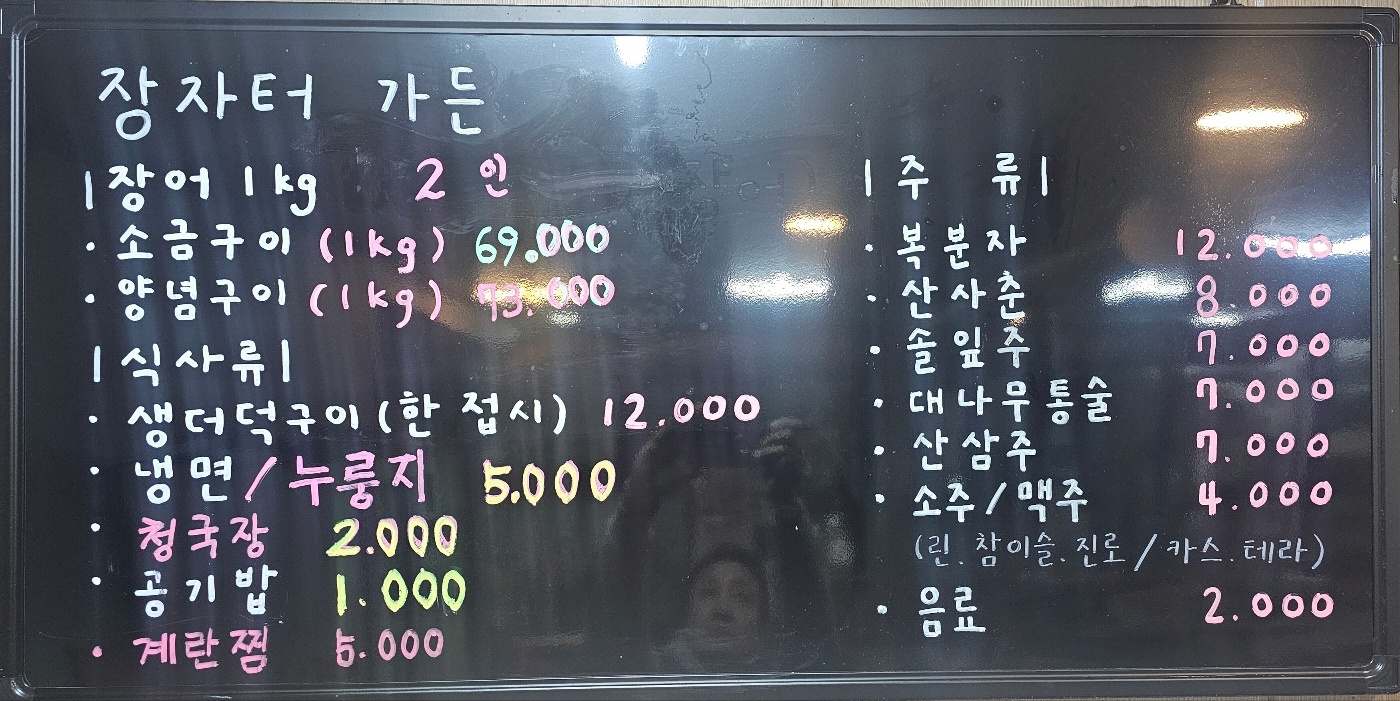 장자터 가든
|장어 1kg 2인
· 소금구이 (1kg) 69.000
· 양념구이 (1kg) 73.000
|식사류|
· 생더덕구이 (한 접시) 12.000
· 냉면/누룽지 5.000
· 청국장 2.000
· 공기밥 1.000
· 계란찜 5.000
|주 류|
· 복분자 12.000
· 산사춘 8.000
· 솔잎주 7.000
· 대나무통술 7.000
· 산삼주 7.000
· 소주/맥주 4.000
(린.참이슬.진로/카스.테라)
· 음료 2.000